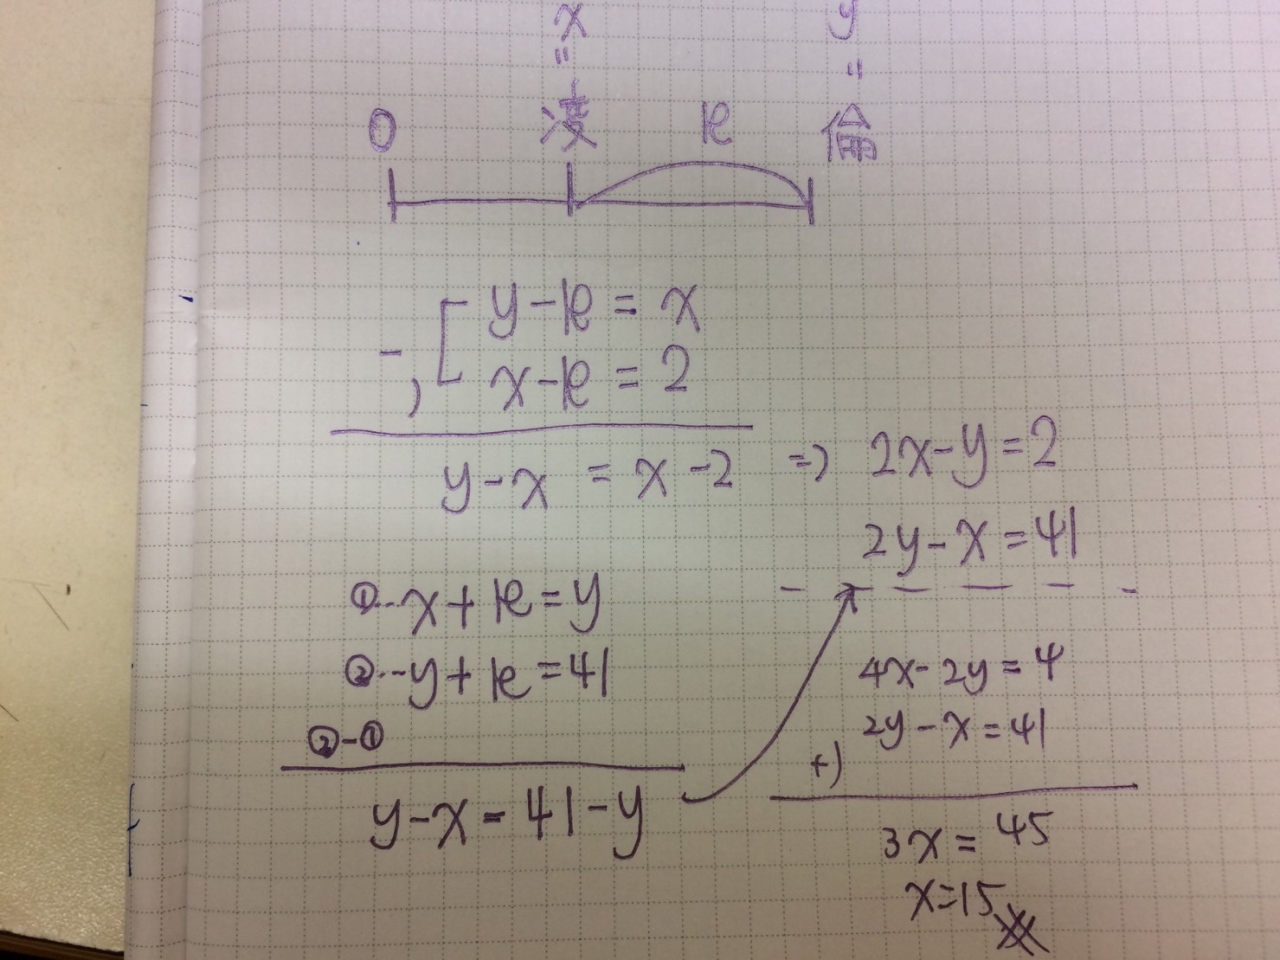 x y
= =
0 凌 k 倫
y-k = x
-) x-k = 2
y-x = x-2 => 2x-y=2
2y-x=41
①…x+k=y
②…y+k=41
②-①
y-x=41-y
4x-2y=4
2y-x=41
+)
3x=45
x=15